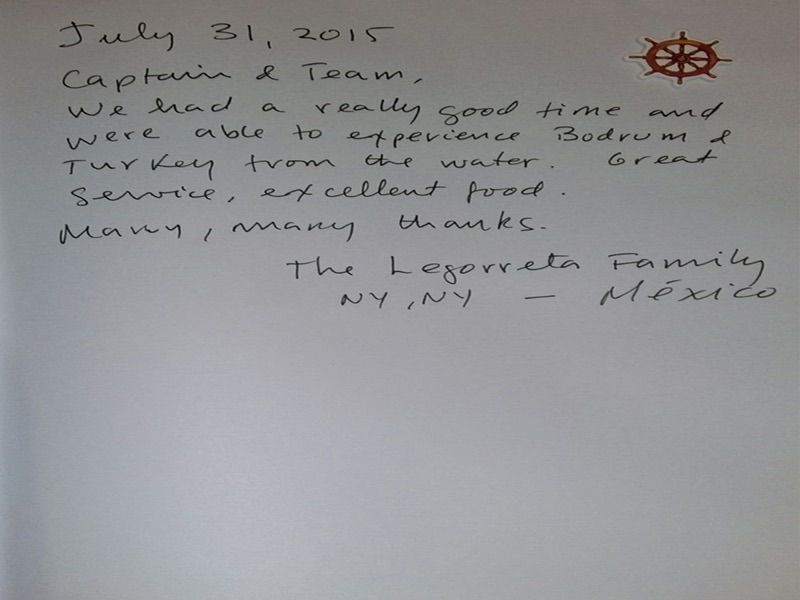 July 31, 2015
Captain & Team,
We had a really good time and
were able to experience Bodrum &
Turkey from the water. Great
service, excellent food.
Many, many thanks.
The Legorreta Family
NY, NY — México